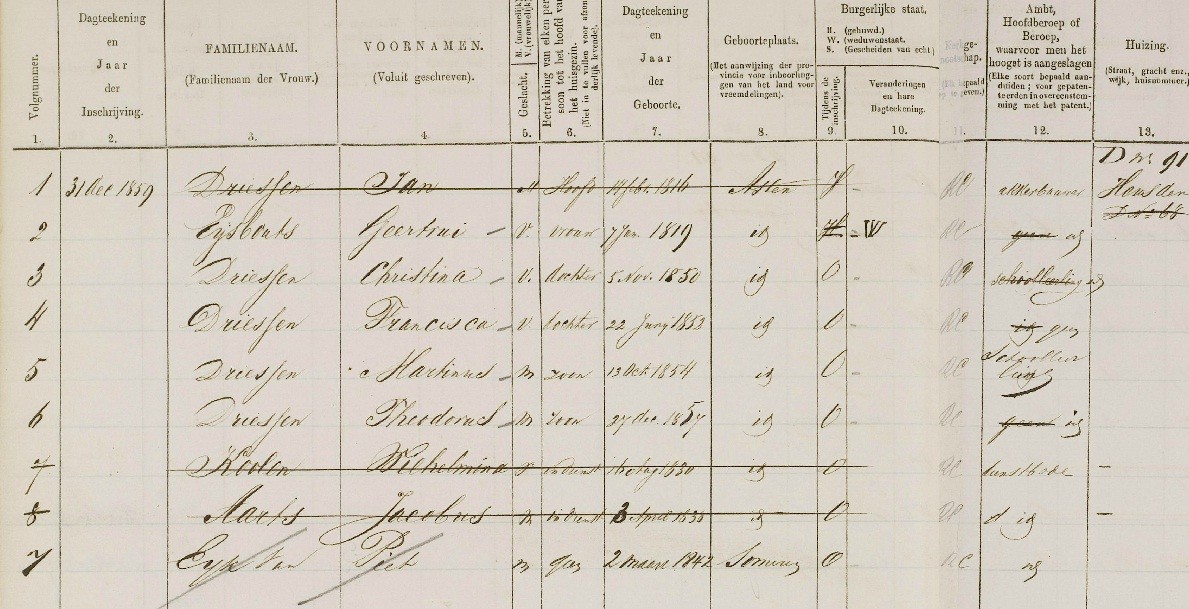 Volgnummer.
1.
Dagteekening
en
Jaar
der
Inschrijving.
2.
FAMILIENAAM.
(Familienaam der Vrouw.)
3.
VOORNAMEN.
(Voluit geschreven).
4.
Geslacht, M. (mannelijk) V. (vrouwelijk)
5.
Betrekking van elken persoon tot het hoofd van het huisgezin.
(Niet in te vullen voor afzonderlijk levende).
6.
Dagteekening
en
Jaar
der
Geboorte.
7.
Geboorteplaats.
(Met aanwijzing der provincie voor inboorlingen van het land voor vreemdelingen).
8.
Burgerlijke staat.
H. (gehuwd.)
W. (weduwenstaat.
S. (Gescheiden van echt)
Tijdens de inschrijving.
9.
Veranderingen
en hare
Dagteekening.
10.
11.
Ambt,
Hoofdberoep of
Beroep,
waarvoor men het
hoogst is aangeslagen
(Elke soort bepaald aanduiden; voor gepatenteerden in overeenstemming met het patent.)
12.
Huizing.
(Straat, gracht enz., wijk, huisnummer.)
13.
D No. 91
1 31 Dec 1859 Driessen Jan M Hooft 14 febr. 1816 Asten H RC akkerbouwer Heusden
D No 68
2 Eijsbouts Geertrui V. vrouw 7 Jan. 1819 id H. W RC geen id
3 Driessen Christina V. dochter 5 Nov. 1850 id O RC schoolleerling id
4 Driessen Francisca V dochter 22 Juny 1853 id O RC id geen
5 Driessen Martinus M zoon 13 Oct. 1854 id O RC schoolleerling
6 Driessen Theodorus M zoon 27 dec. 1857 id O RC geen id
7 Koolen Wilhelmina V in dienst 1830 id O RC dienstbode
8 Aarts Jacobus M in dienst 3 April 1835 id O RC d id
7 Eyk Van Piet M geen 2 maart 1842 Someren O RC id